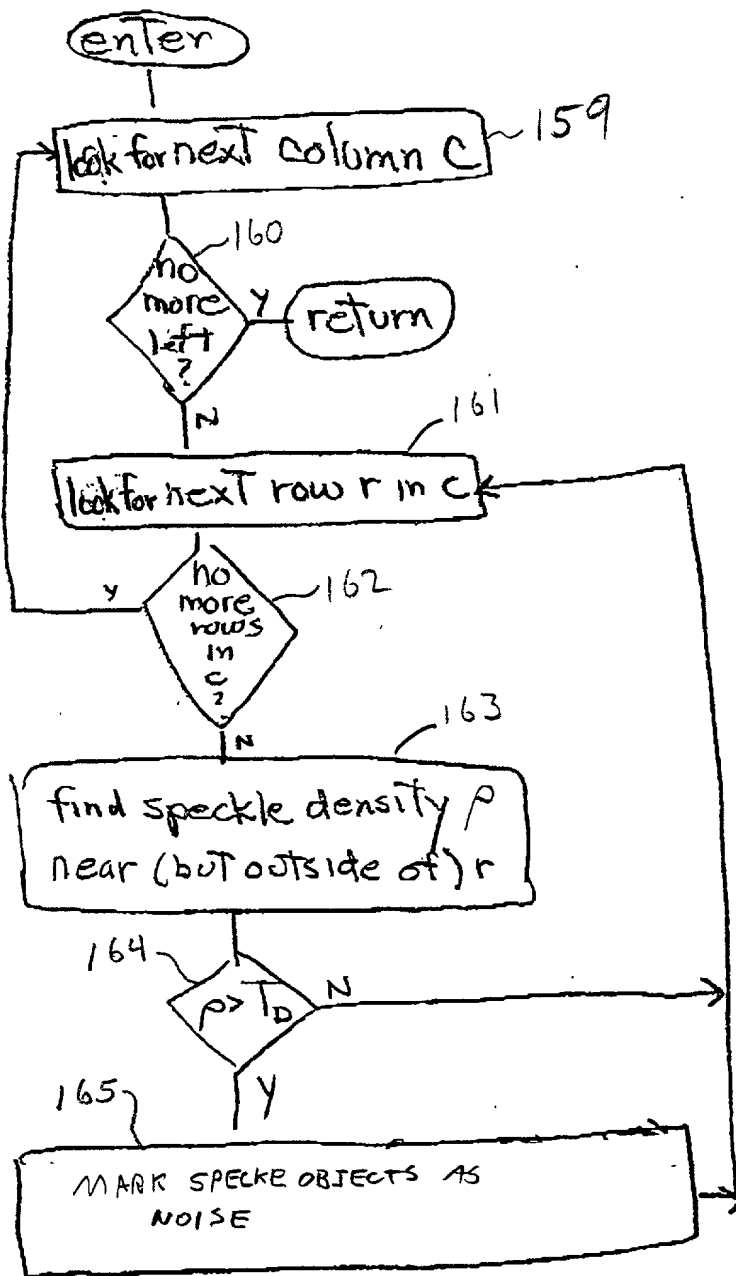 enter
look for next column C
159
160
no
more
left
?
Y
return
N
161
look for next row r in c
162
Y
no
more
rows
in
c
?
N
163
find speckle density ρ
near (but outside of) r
164
ρ > T_D
N
Y
165
MARK SPECKE OBJECTS AS
NOISE